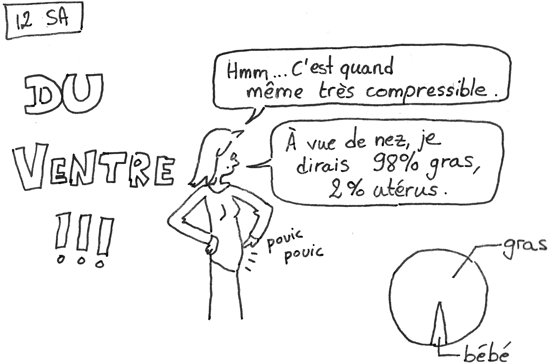 12 SA
DU
VENTRE
!!!
Hmm... C'est quand
même très compressible.
À vue de nez, je
dirais 98% gras,
2% utérus.
pouic
pouic
gras
bébé